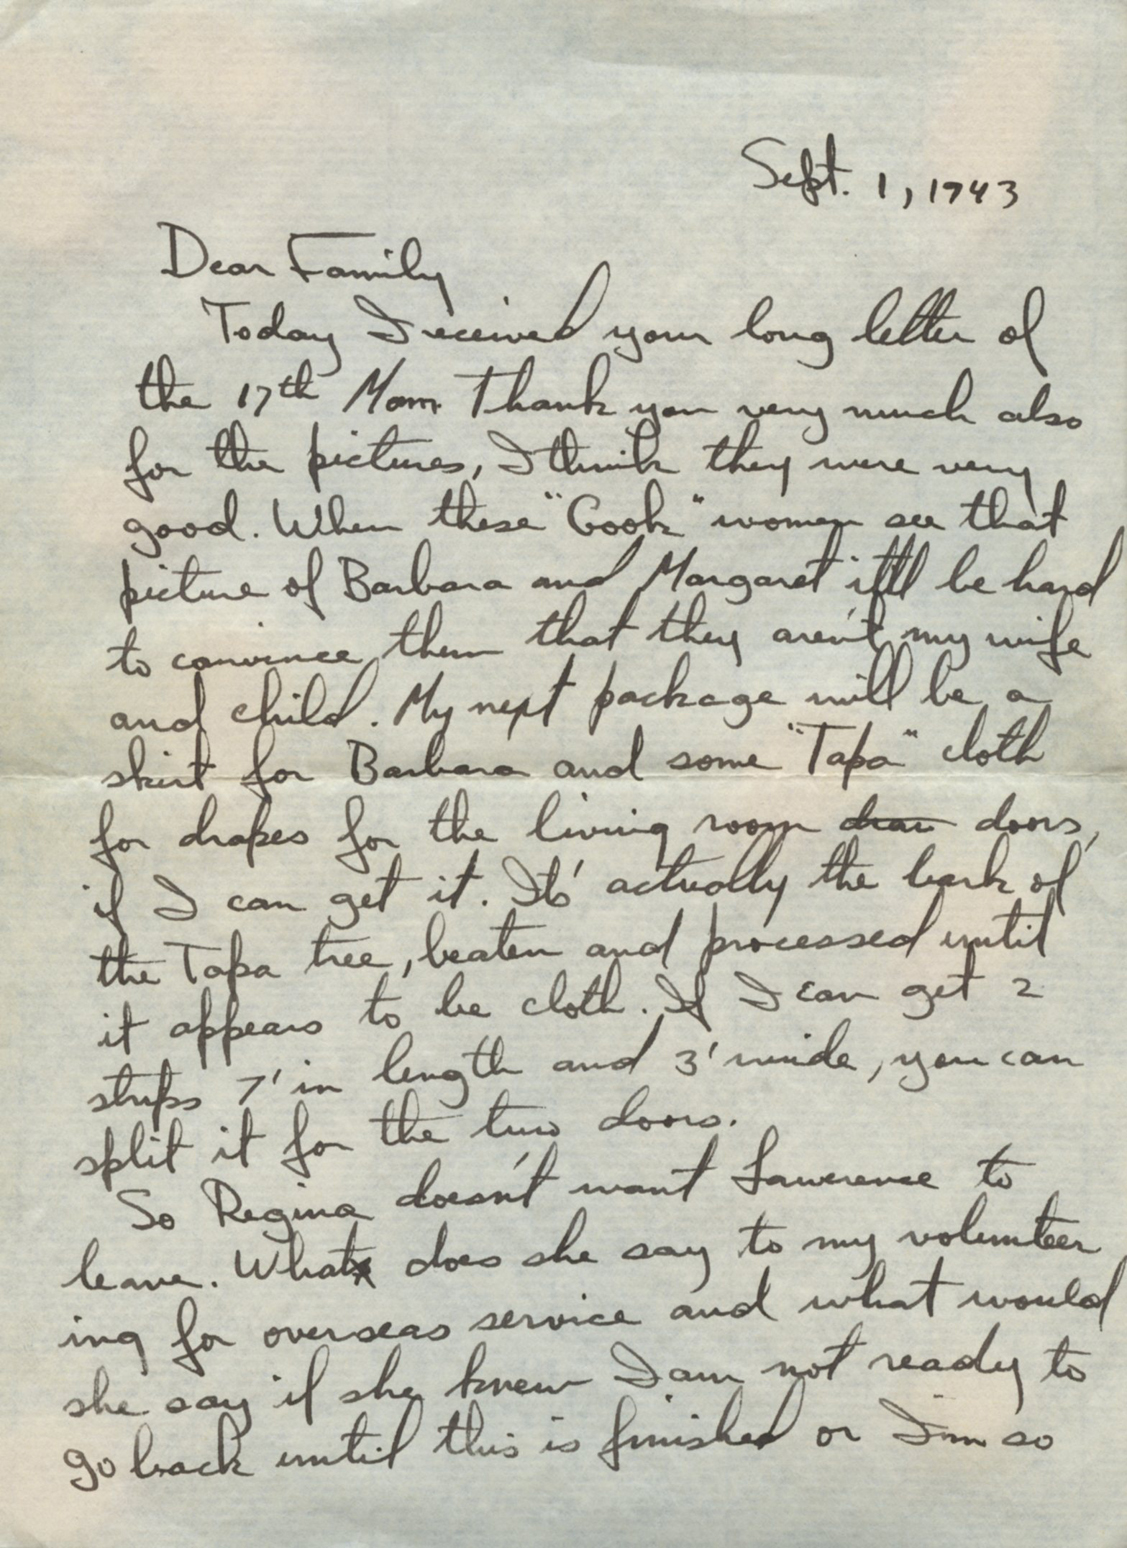 Sept. 1, 1943
Dear Family
Today I received your long letter of
the 17th Mom. Thank you very much also
for the pictures, I think they were very
good. When these "Gook" women see that
picture of Barbara and Margaret it'll be hard
to convince them that they aren't my wife
and child. My next package will be a
skirt for Barbara and some "Tapa" cloth
for drapes for the living room doors,
if I can get it. Its' actually the bark of
the Tapa tree, beaten and processed until
it appears to be cloth. If I can get 2
strips 7' in length and 3' wide, you can
split it for the two doors.
So Regina doesn't want Lawerence to
leave. What does she say to my volunteer
ing for overseas service and what would
she say if she knew I am not ready to
go back until this is finished or I'm so